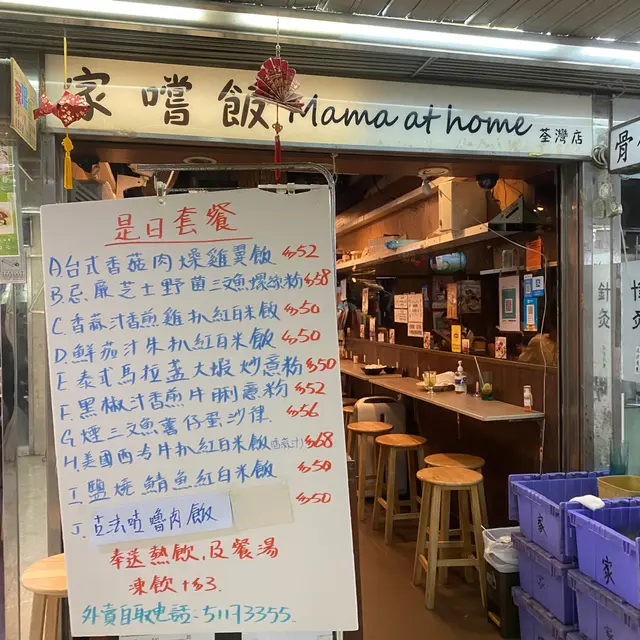 家嚐飯 Mama at home 荃灣店
是日套餐
A. 台式香菇肉燥雞翼飯 $52
B. 忌廉芝士野菌三文魚螺絲粉 $58
C. 香蒜汁香煎雞扒紅白米飯 $50
D. 鮮茄汁朱扒紅白米飯 $50
E. 泰式馬拉盞大蝦炒意粉 $50
F. 黑椒汁香煎牛脷意粉 $52
G. 煙三文魚薯仔蛋沙律 $56
H. 美國西冷牛扒紅白米飯 $68
I. 鹽燒鯖魚紅白米飯 $50
J. 古法炆嚕肉飯 $50
奉送熱飲,及餐湯
凍飲+$3.
外賣自取電話:51173355.
針灸
家
家
家